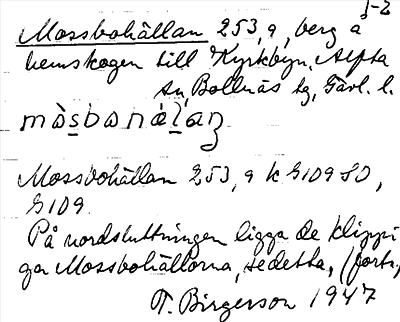 1-2
Mossbohällan 253,9, berg å
hemskogen till Kyrkbyn, Alfta
sn, Bollnäs tg, Gävl. l.
Mossbohällan 253,9 k G109 SO,
G109.
På nordsluttningen ligga de klippi
ga Mossbohällorna, se detta, (forts,
T. Birgerson 1947